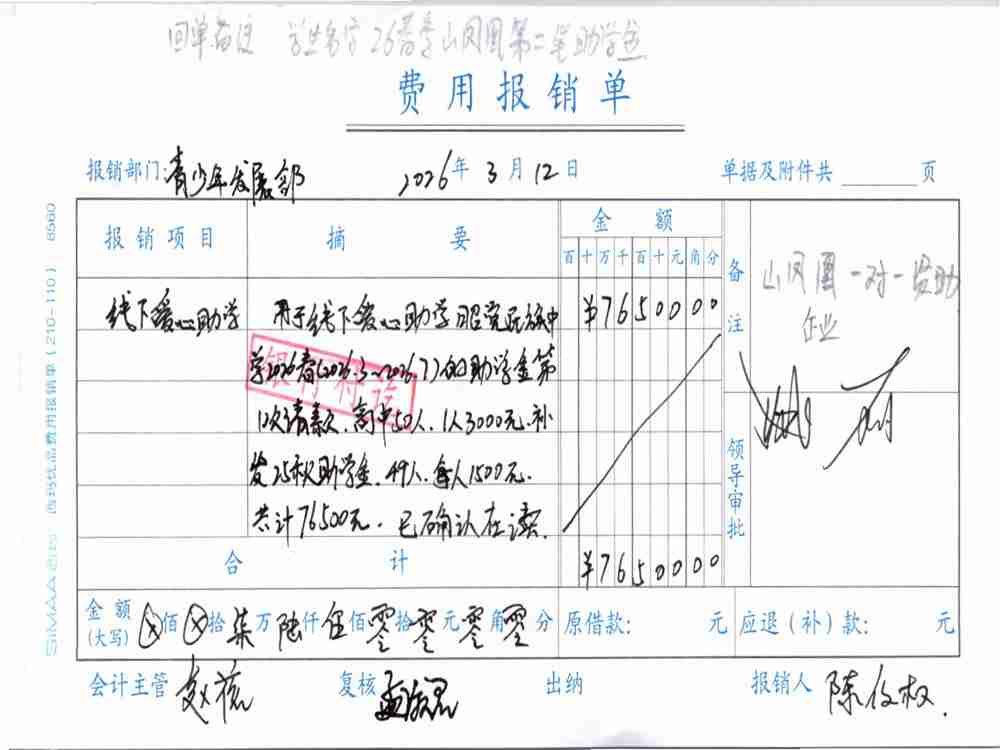 回单备注 学生名字26春季山凤凰第二笔助学金
费用报销单
报销部门:青少年发展部 2026年3月12日 单据及附件共 页
报销项目 摘要 金额 备注
百十万千百十元角分
山凤凰一对一资助
企业
线下爱心助学 用于线下爱心助学昭觉民族中 ¥7650000
学2026春(2026.3~2026.7)的助学金第
银行付讫
1次请款.高中50人.1人3000元.补
发25秋助学金.49人.每人1500元.
共计76500元.已确认在读.
领导审批
合计 ¥7650000
金额(大写) ⊗佰⊗拾柒万陆仟伍佰零拾零元零角零分 原借款: 元 应退(补)款: 元
会计主管 复核 出纳 报销人
SIMAA 西玛 西玛优品费用报销单(210-110) 8560